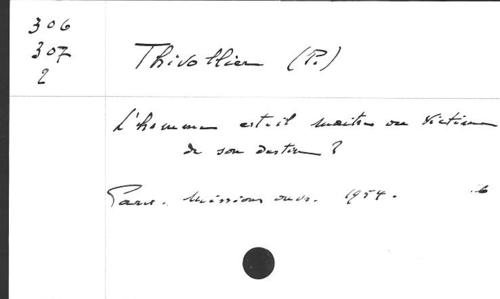 306
307
2
Thivollier (P.)
L'homme est-il maître ou victime
de son destin ?
Paris. Missions ouvr. 1954. 6